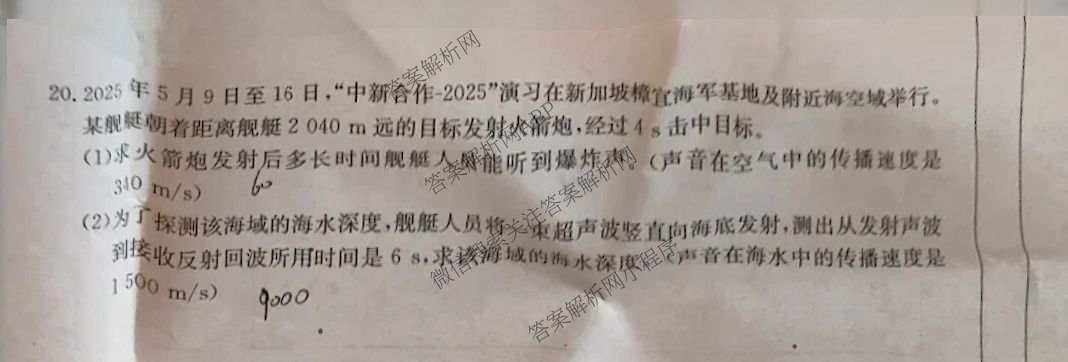 20. 2025 年 5 月 9 日至 16 日,“中新合作-2025”演习在新加坡樟宜海军基地及附近海空域举行。
某舰艇朝着距离舰艇 2 040 m 远的目标发射火箭炮,经过 4 s 击中目标。
(1)求火箭炮发射后多长时间舰艇人员能听到爆炸声。(声音在空气中的传播速度是
340 m/s)
60
(2)为了探测该海域的海水深度,舰艇人员将一束超声波竖直向海底发射,测出从发射声波
到接收反射回波所用时间是 6 s,求该海域的海水深度。(声音在海水中的传播速度是
1 500 m/s)
9000
答案解析网
答案解析网APP
微信搜索关注答案解析网
答案解析网小程序